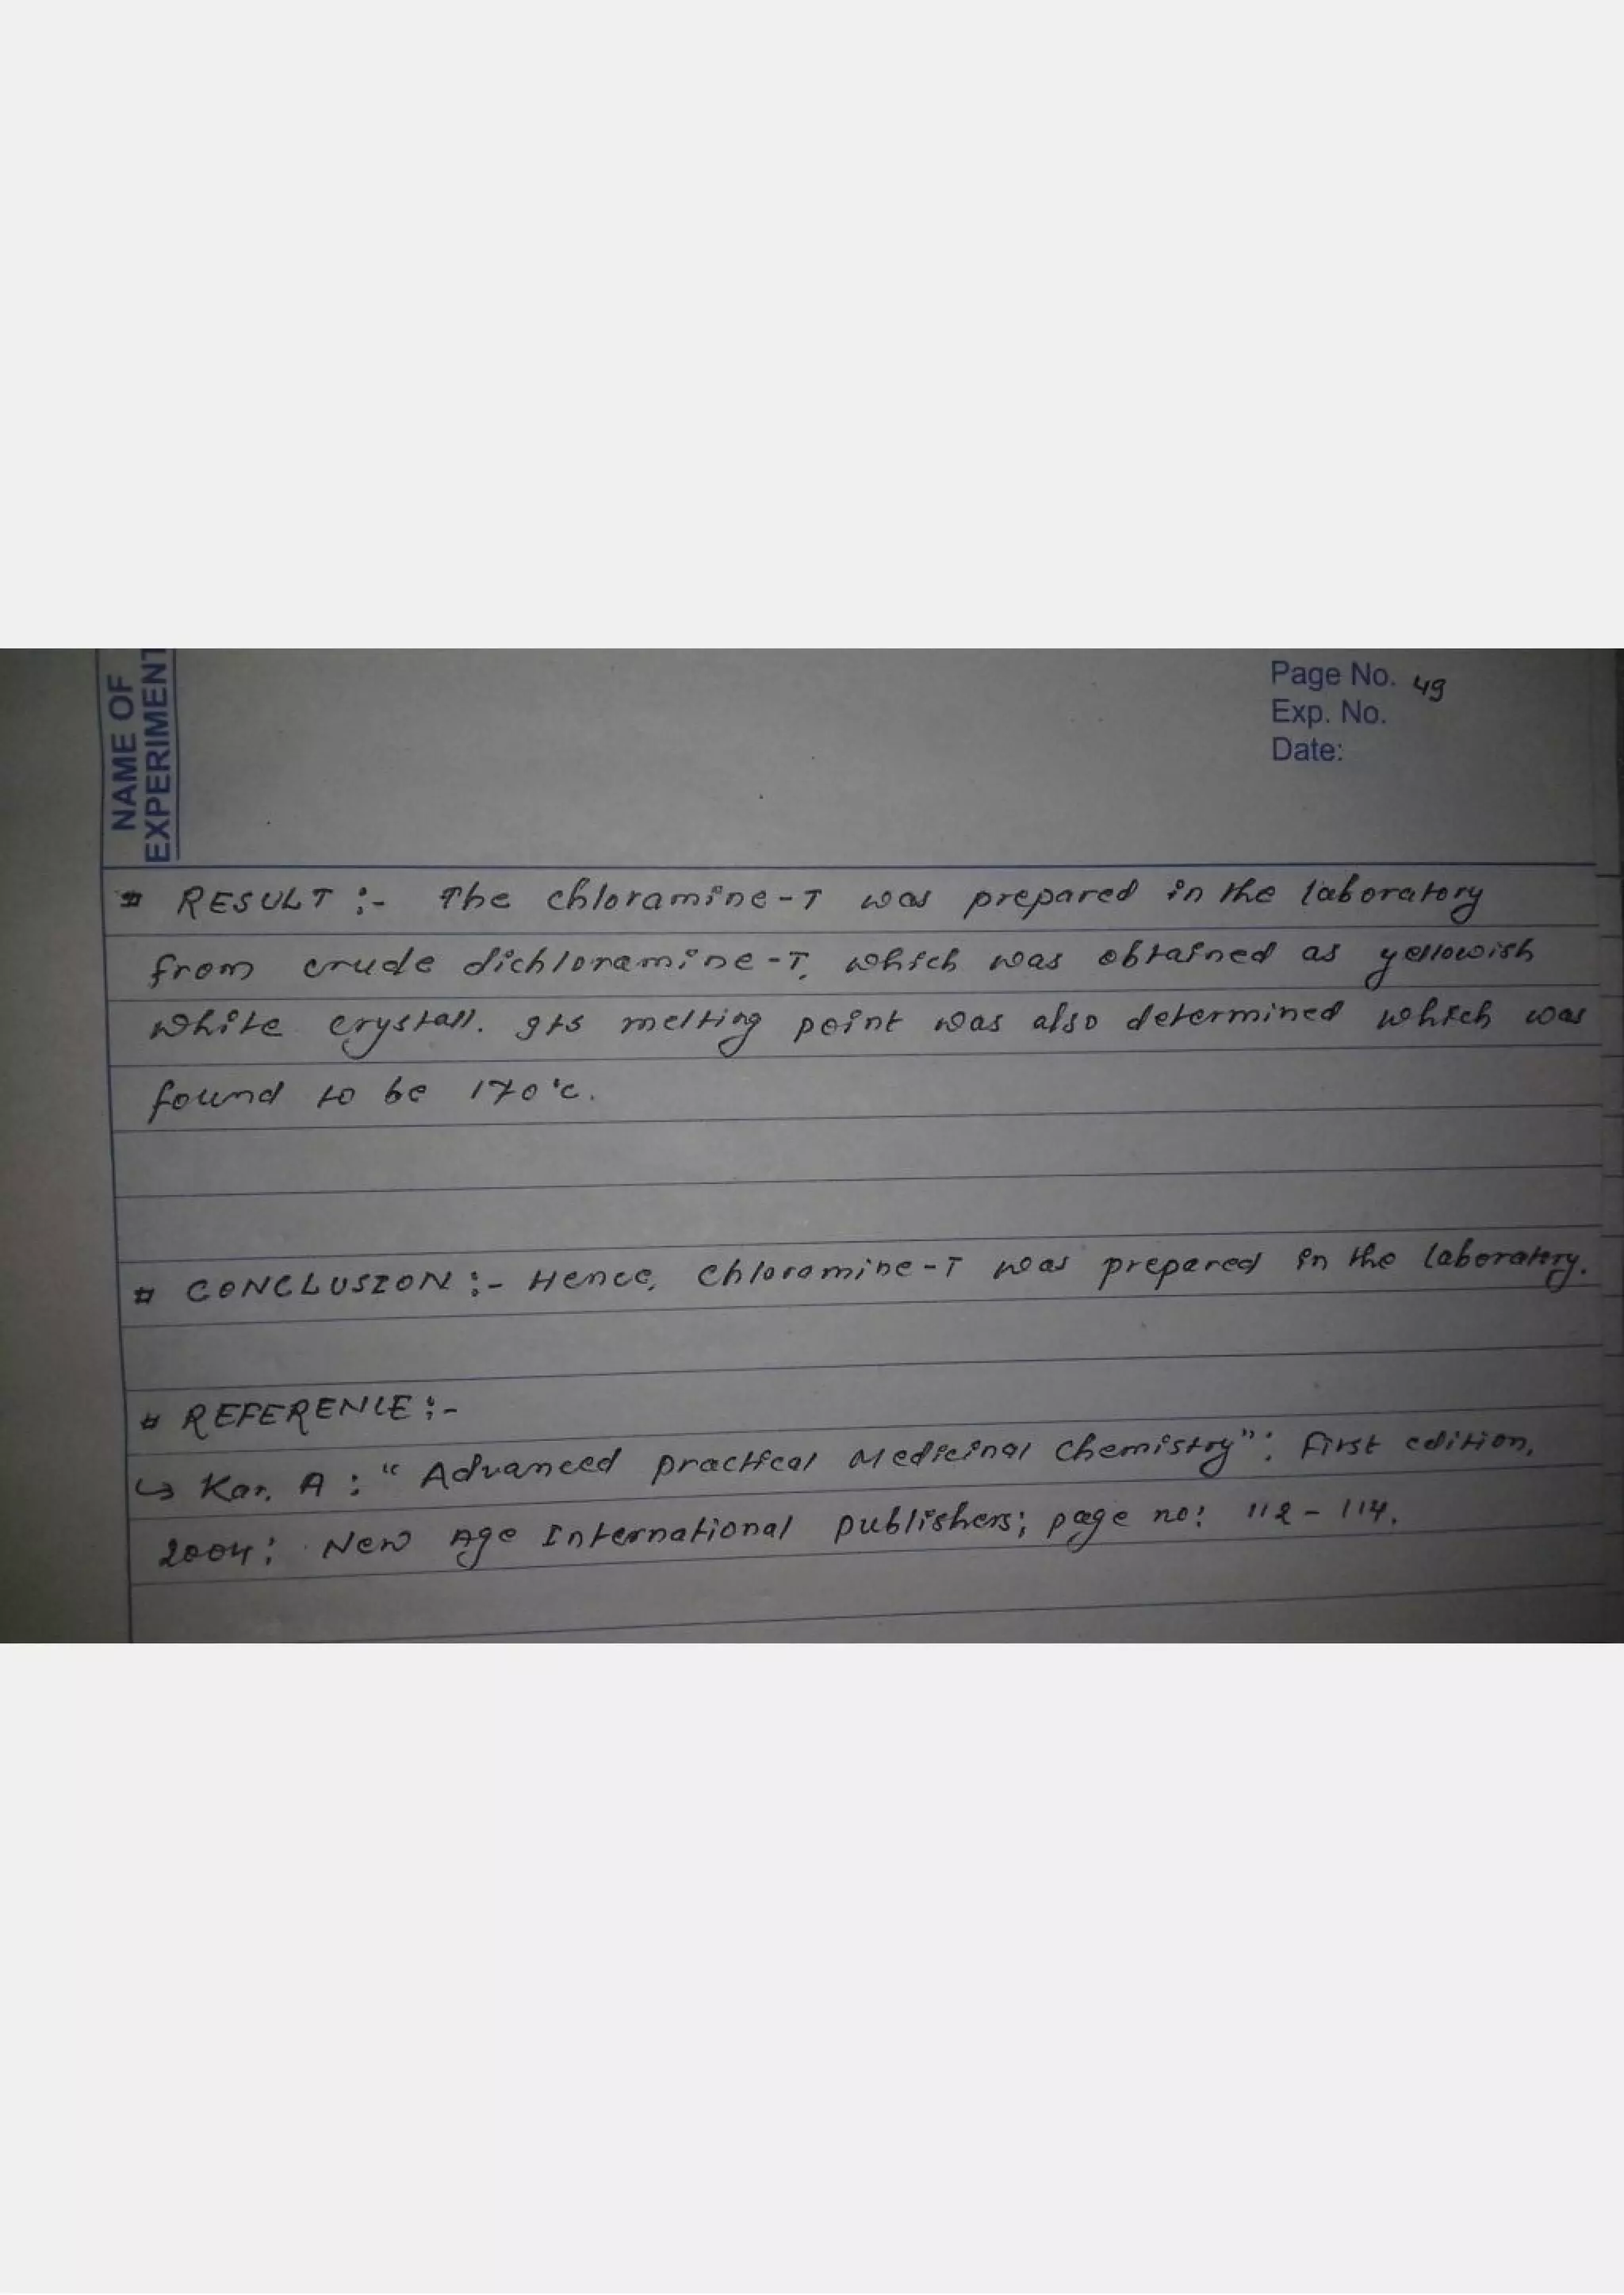 NAME OF
EXPERIMENT
Page No. 49
Exp. No.
Date:
# RESULT :- The chloramine-T was prepared in the laboratory
from crude dichloramine-T, which was obtained as yellowish
white crystall. Its melting point was also determined which was
found to be 170°c.
# CONCLUSION :- Hence, chloramine-T was prepared in the laboratory.
# REFERENCE :-
↳ Kar. A : "Advanced practical Medicinal chemistry": First edition,
2004: New Age International publishers; page no: 112 - 114.